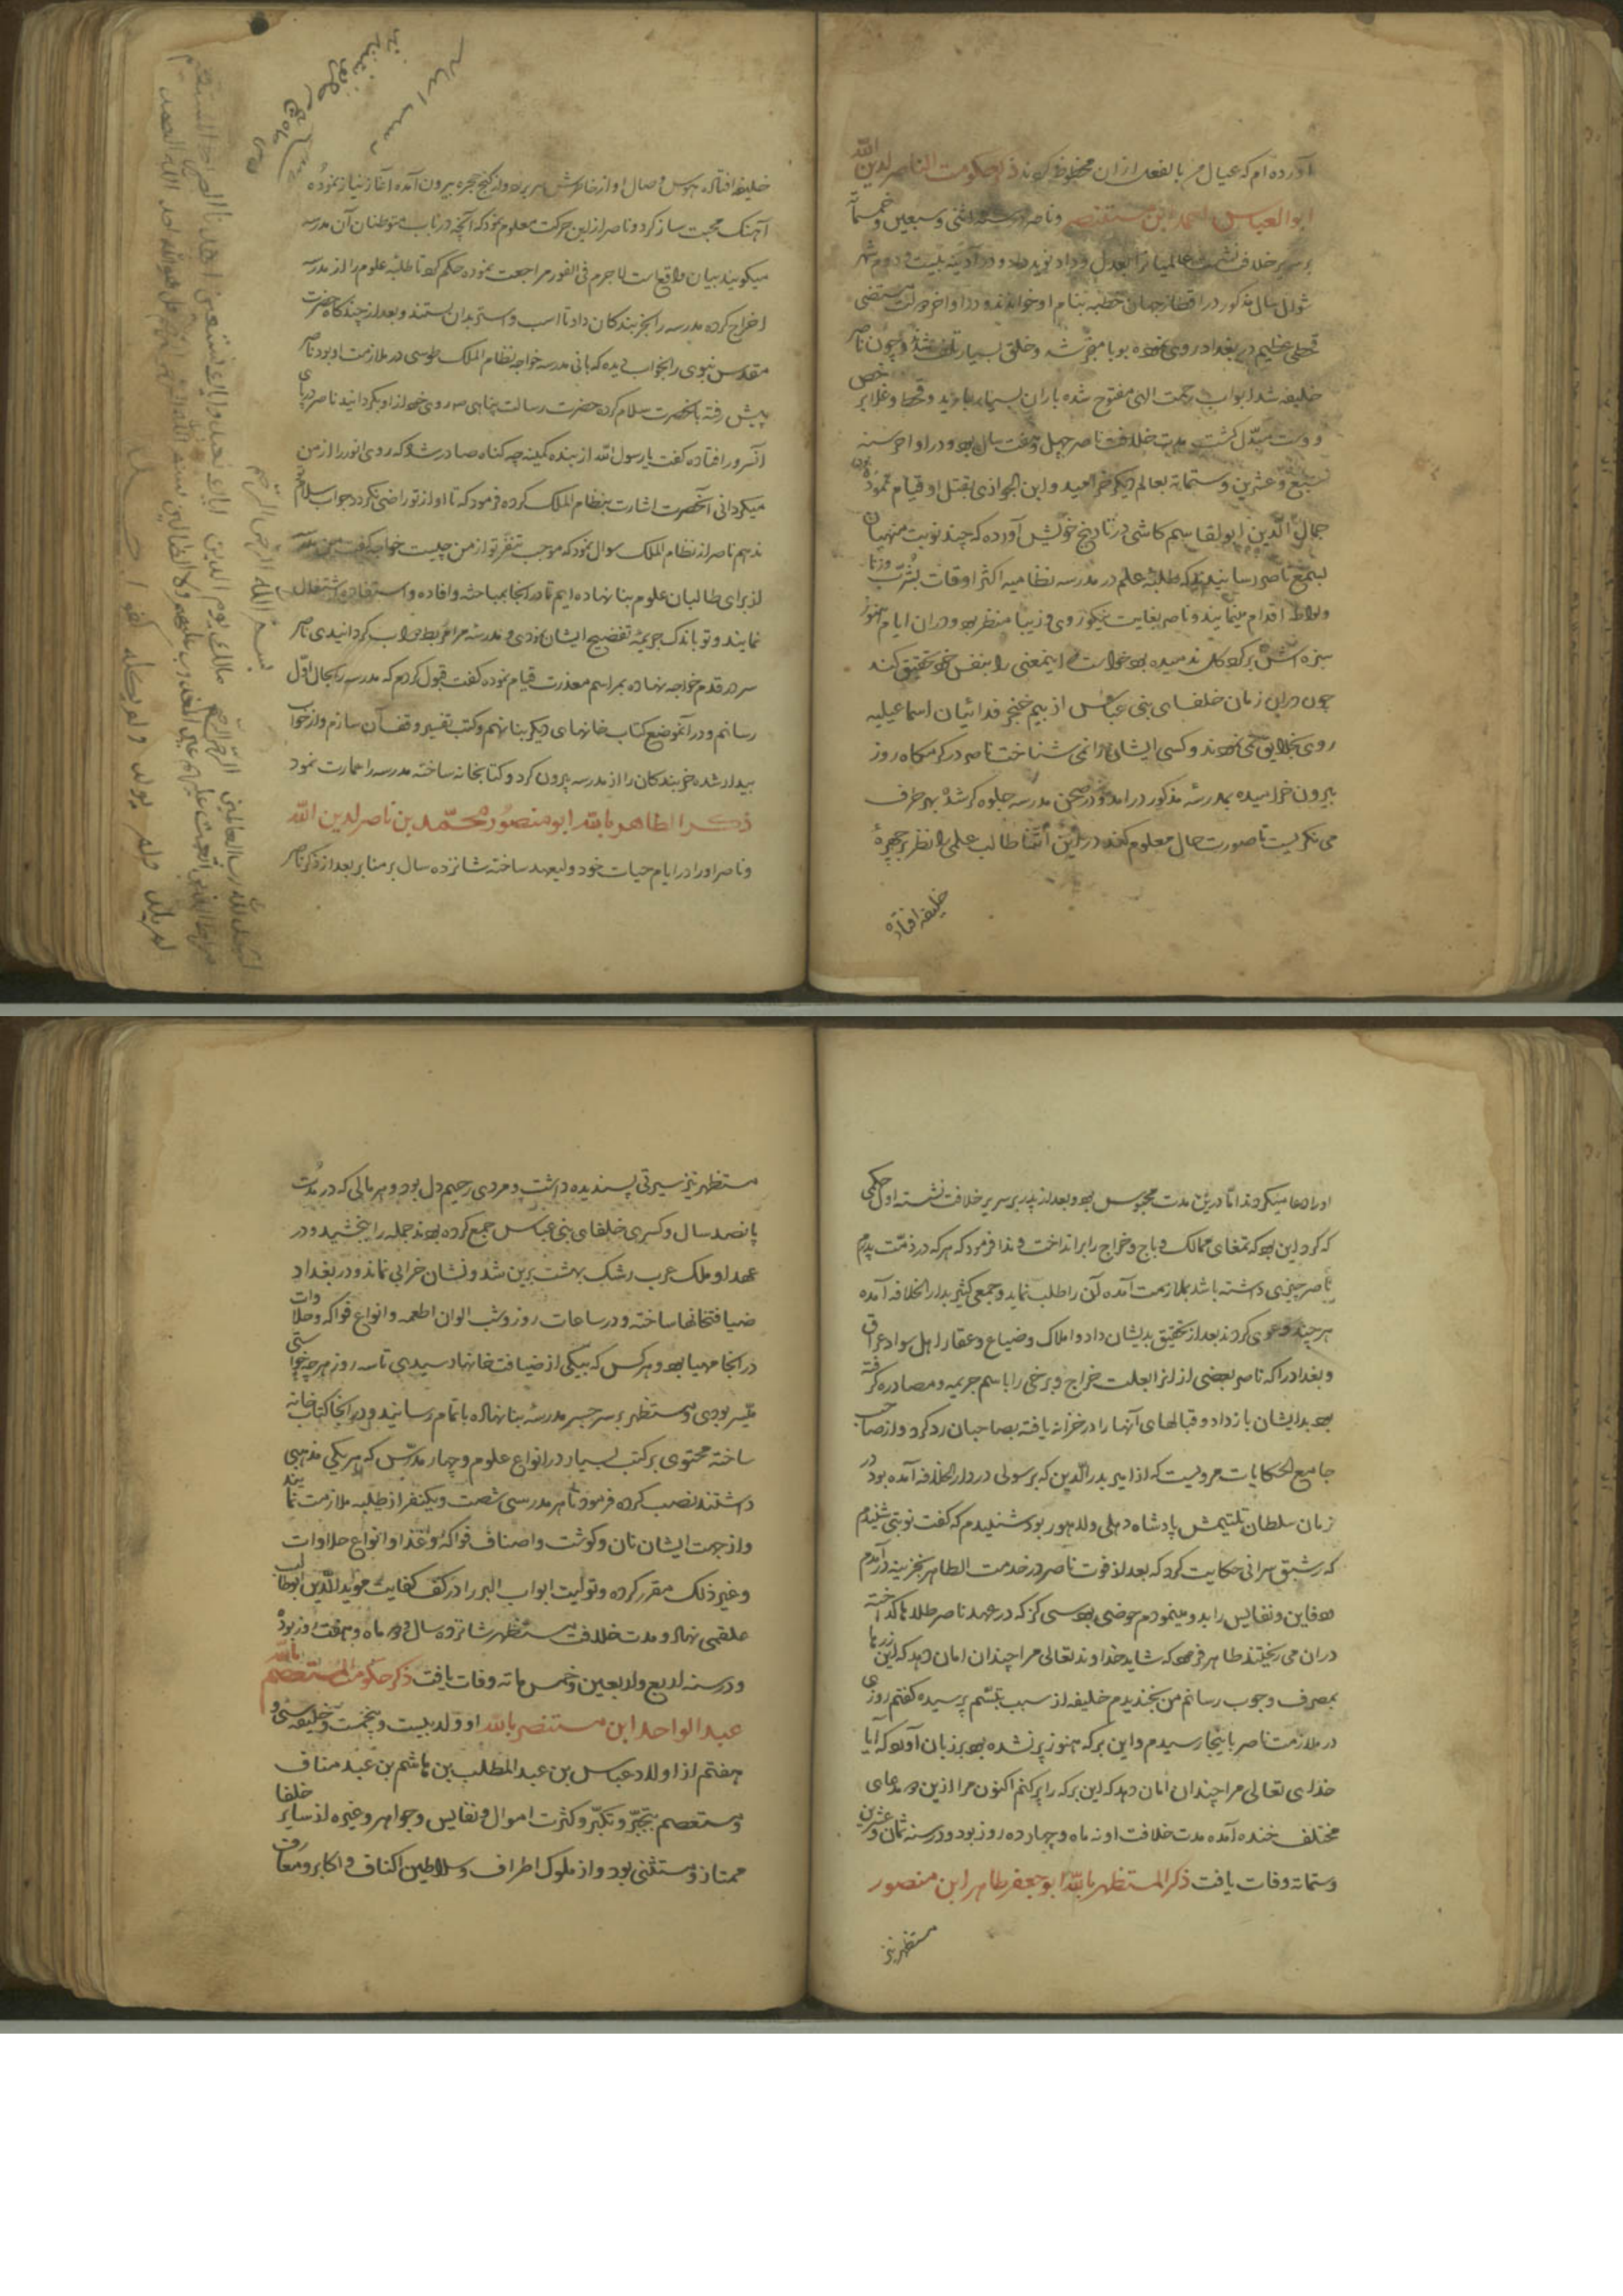 آورده‌ام که عیال من بالفعل ازان محظوظ کردند ذکر حکومت الناصر لدین الله
ابوالعباس احمد ابن مستنصر وناصر در سنه اثنی وسبعین وخمسمائة
بر سریر خلافت نشست عالمیانرا بعدل وداد نوید داد ودر آدینه بیست ودوم شهر
شوال سال مذکور در اقطار جهان خطبه بنام او خواندند ودر اواخر دولت مستضی
قحطی عظیم در بغداد روی نموده بوبا منجر شد وخلق بسیار تلف شدند وچون ناصر
خلیفه شد ابواب رحمت الهی مفتوح شده باران بسیار بارید وقحط وغلا برخص
ووسعت مبدّل کشت مدت خلافت ناصر چهل وهفت سال بود ودر اواخر سنه
تسع وعشرین وستمایة بعالم دیکر خرامید وابن الجوازی بقتل او قیام نموده بود
جمال الدّین ابوالقاسم کاشی در تاریخ خویش آورده که چند نوبت منهیان
بسمع ناصر رسانیدند که طلبه علم در مدرسه نظامیه اکثر اوقات بشرب وزنا
ولواط اقدام مینمایند وناصر بغایت نیکوروی وزیبا منظر بود ودران ایام هنوز
سبزه اش برکرد کل ندمیده بود خواست که اینمعنی را بنفس خود تحقیق کند
چون دران زمان خلفای بنی عباس از بیم خنجر فدائیان اسماعیلیه
روی بخلایق نمی نمودند وکسی ایشانرا نمی شناخت ناصر در کرمکاه روز
بیرون خرامیده بمدرسه مذکور درامد ودر صحن مدرسه جلوه کر شد بهر طرف
می نکریست تا صورت حال معلوم کند در این اثنا طالب علمی را نظر بر چهرهٔ
خلیفه افتاده
خلیفه افتاد هوس وصال او از خاطرش سر برزد واز کنج حجره بیرون آمده آغاز نیاز نموده
آهنک محبت ساز کرد وناصر ازین حرکت معلوم نمود که آنچه در باب متوطنان آن مدرسه
میکویند بیان واقعست لاجرم فی الفور مراجعت نموده حکم کرد تا طلبه علوم را از مدرسه
اخراج کرده مدرسه را بخربندکان داد تا اسب واستر بدان بستند وبعد از چندکاه حضرت
مقدس نبوی را بخواب دیده که بانی مدرسه خواجه نظام الملک طوسی در ملازمت او بود ناصر
پیش رفته بانحضرت سلام کرد حضرت رسالت پناهی روی خود از او بکردانید ناصر در پای
آنسرور افتاده کفت یا رسول الله از بنده کمینه چه کناه صادر شد که روی انور را از من
میکردانی آنحضرت اشارت بنظام الملک کرده فرمود که تا او از تو راضی نکردد جواب سلام
ندهم ناصر از نظام الملک سوال نمود که موجب تنفّر تو از من چیست خواجه کفت من مدرسه
از برای طالبان علوم بنا نهاده ایم تا در انجا بمباحثه وافاده واستفاده اشتغال
نمایند وتو باندک جریمهٔ تفضیح ایشان نمودی ومدرسه مرا مربط دواب کردانیدی ناصر
سر در قدم خواجه نهاده بمراسم معذرت قیام نموده کفت قبول کردم که مدرسه را بحال اوّل
رسانم ودر آنموضع کتاب خانهای دیکر بنا نهم وکتب تفسیر وقف آن سازم واز خواب
بیدار شده خربندکان را از مدرسه بیرون کرد وکتابخانه ساخته مدرسه را عمارت نمود
ذکر الطاهر بالله ابو منصور محمّد بن ناصر لدین الله
وناصر اورا در ایام حیات خود ولیعهد ساخته شانزده سال بر منابر بعد از ذکر ناصر
بسم الله الرحمن الرحیم
الحمد لله رب العالمین الرحمن الرحیم مالک یوم الدین ایاک نعبد وایاک نستعین اهدنا الصراط المستقیم
صراط الذین انعمت علیهم غیر المغضوب علیهم ولا الضالین بسم الله الرحمن الرحیم قل هو الله احد الله الصمد
لم یلد ولم یولد ولم یکن له کفوا احد
اورا دعا میکردند امّا درین مدت محبوس بود وبعد از پدر بر سریر خلافت نشسته اول حکمی
که کرد این بود که تمغای ممالک وباج وخراج را برانداخت وندا فرمود که هرکه در ذمّت پدرم
ناصر چیزی داشته باشد بملازمت آمده آن را طلب نماید وجمعی کثیر بدار الخلافه آمده
هرچند دعوی کردند بعد از تحقیق بدیشان داد واملاک وضیاع وعقار اهل سواد عراق
وبغداد را که ناصر بعضی از انرا بعلت خراج وبرخی را باسم جریمه ومصادره کرفته
بود بدایشان باز داد وقبالهای آنها را در خزانه یافته بصاحبان رد کرد واز صاحب
جامع الحکایات مرویست که از امیر بدر الدّین که برسولی در دار الخلافه آمده بود در
زمان سلطان یلتیمش پادشاه دهلی ولاهور بود شنیدم که کفت نوبتی شنیدم
که رشیق سرائی حکایت کرد که بعد از فوت ناصر در خدمت الطاهر بخزینه درآمدم
دفاین ونفایس را بدو مینمودم حوضی بود سی کز که در عهد ناصر طلاها کداخته
دران می ریختند طاهر فرمود که شاید خداوند تعالی مرا چندان امان دهد که این زرها
بمصرف وجوب رسانم من بخندیدم خلیفه از سبب تبسّم پرسیده کفتم روزی
در ملازمت ناصر باینجا رسیدم واین برکه هنوز پر نشده بود بر زبان آورد که آیا
خدای تعالی مرا چندان امان دهد که این برکه را پر کنم اکنون مرا ازین دو مدعای
مختلف خنده آمده مدت خلافت او نه ماه وچهارده روز بود ودر سنه ثمان وعشرین
وستمائة وفات یافت ذکر المستظهر بالله ابو جعفر طاهر ابن منصور
مستظهر نیز
مستظهر نیز سیرتی پسندیده داشت ومردی رحیم دل بود وهر مالی که در مدّت
پانصد سال وکسری خلفای بنی عباس جمع کرده بودند جمله را ببخشید ودر
عهد او ملک عرب رشک بهشت برین شد ونشان خرابی نماند ودر بغداد
ضیافتخانها ساخته ودر ساعات روز وشب الوان اطعمه وانواع فواکه وحلاوات
در انجا مهیا بود وهرکس که بیکی از ضیافت خانها رسیدی تا سه روز هرچه خواستی
میّسر بودی ومستظهر بر سر جسر مدرسهٔ بنا نهاده باتمام رسانید ودر انجا کتاب خانه
ساخته محتوی بر کتب بسیار در انواع علوم وچهار مدرّس که هر یکی مذهبی
داشتند نصب کرده فرمود تا هر مدرسی شصت ویکنفر از طلبه ملازمت نمایند
واز جهت ایشان نان وکوشت واصناف فواکه وغذا وانواع حلاوات
وغیر ذلک مقرر کرده وتولیت ابواب البر را در کف کفایت موید الدّین ابوطالب
علقمی نهاد ومدت خلافت مستظهر شانزده سال وده ماه وهفت روز بود
ودر سنه اربع واربعین وخمس مائه وفات یافت ذکر حکومت المستعصم بالله
عبد الواحد ابن مستنصر بالله او ولد بیست وپنجمست وخلیفه سی و
هفتم از اولاد عباس بن عبد المطلب بن هاشم بن عبد مناف
ومستعصم بتجبّر وتکبّر وکثرت اموال ونفایس وجواهر وغیره از سایر خلفا
ممتاز ومستثنی بود واز ملوک اطراف وسلاطین اکناف واکابر ومعارف